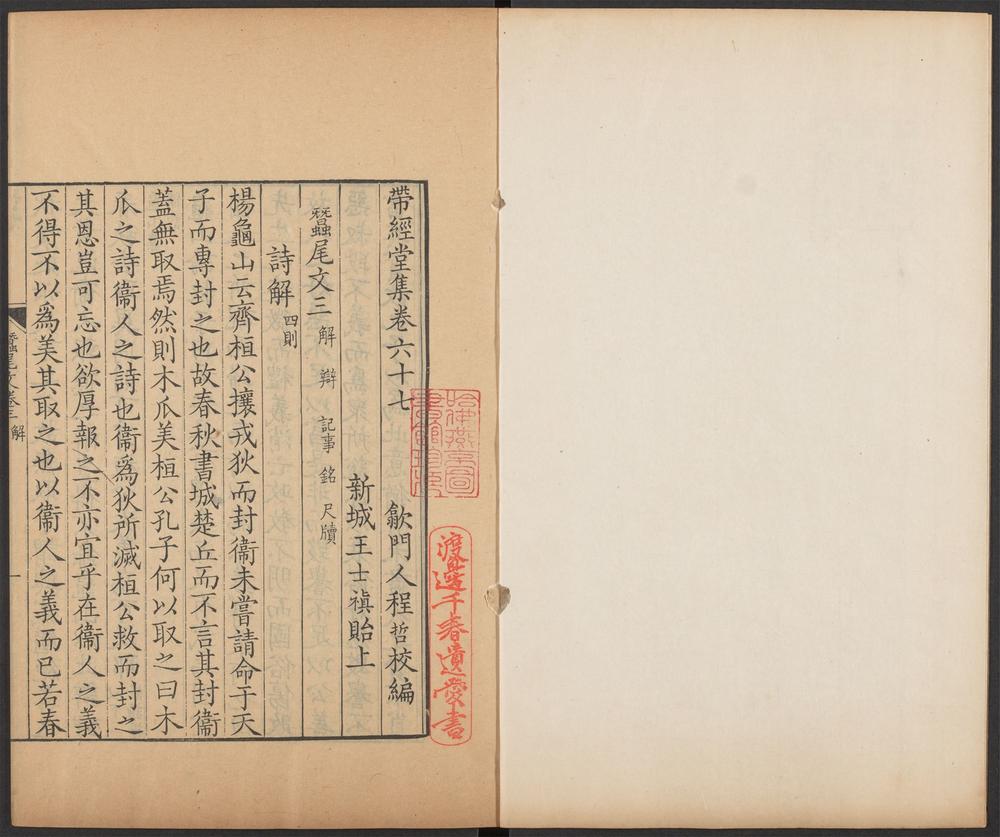 帶經堂集卷六十七　歙門人程哲校編
新城王士禛貽上
蠶尾文三　解　辯　記事　銘　尺牘
詩解四則
楊龜山云齊桓公攘戎狄而封衞未嘗請命于天
子而專封之也故春秋書城楚丘而不言其封衞
蓋無取焉然則木瓜美桓公孔子何以取之曰木
瓜之詩衞人之詩也衞爲狄所滅桓公救而封之
其恩豈可忘也欲厚報之不亦宜乎在衞人之義
不得不以爲美其取之也以衞人之義而已若春
蠶尾文卷三　解
一
哈佛燕京圖
書館珍藏
渡邊千春遺愛書